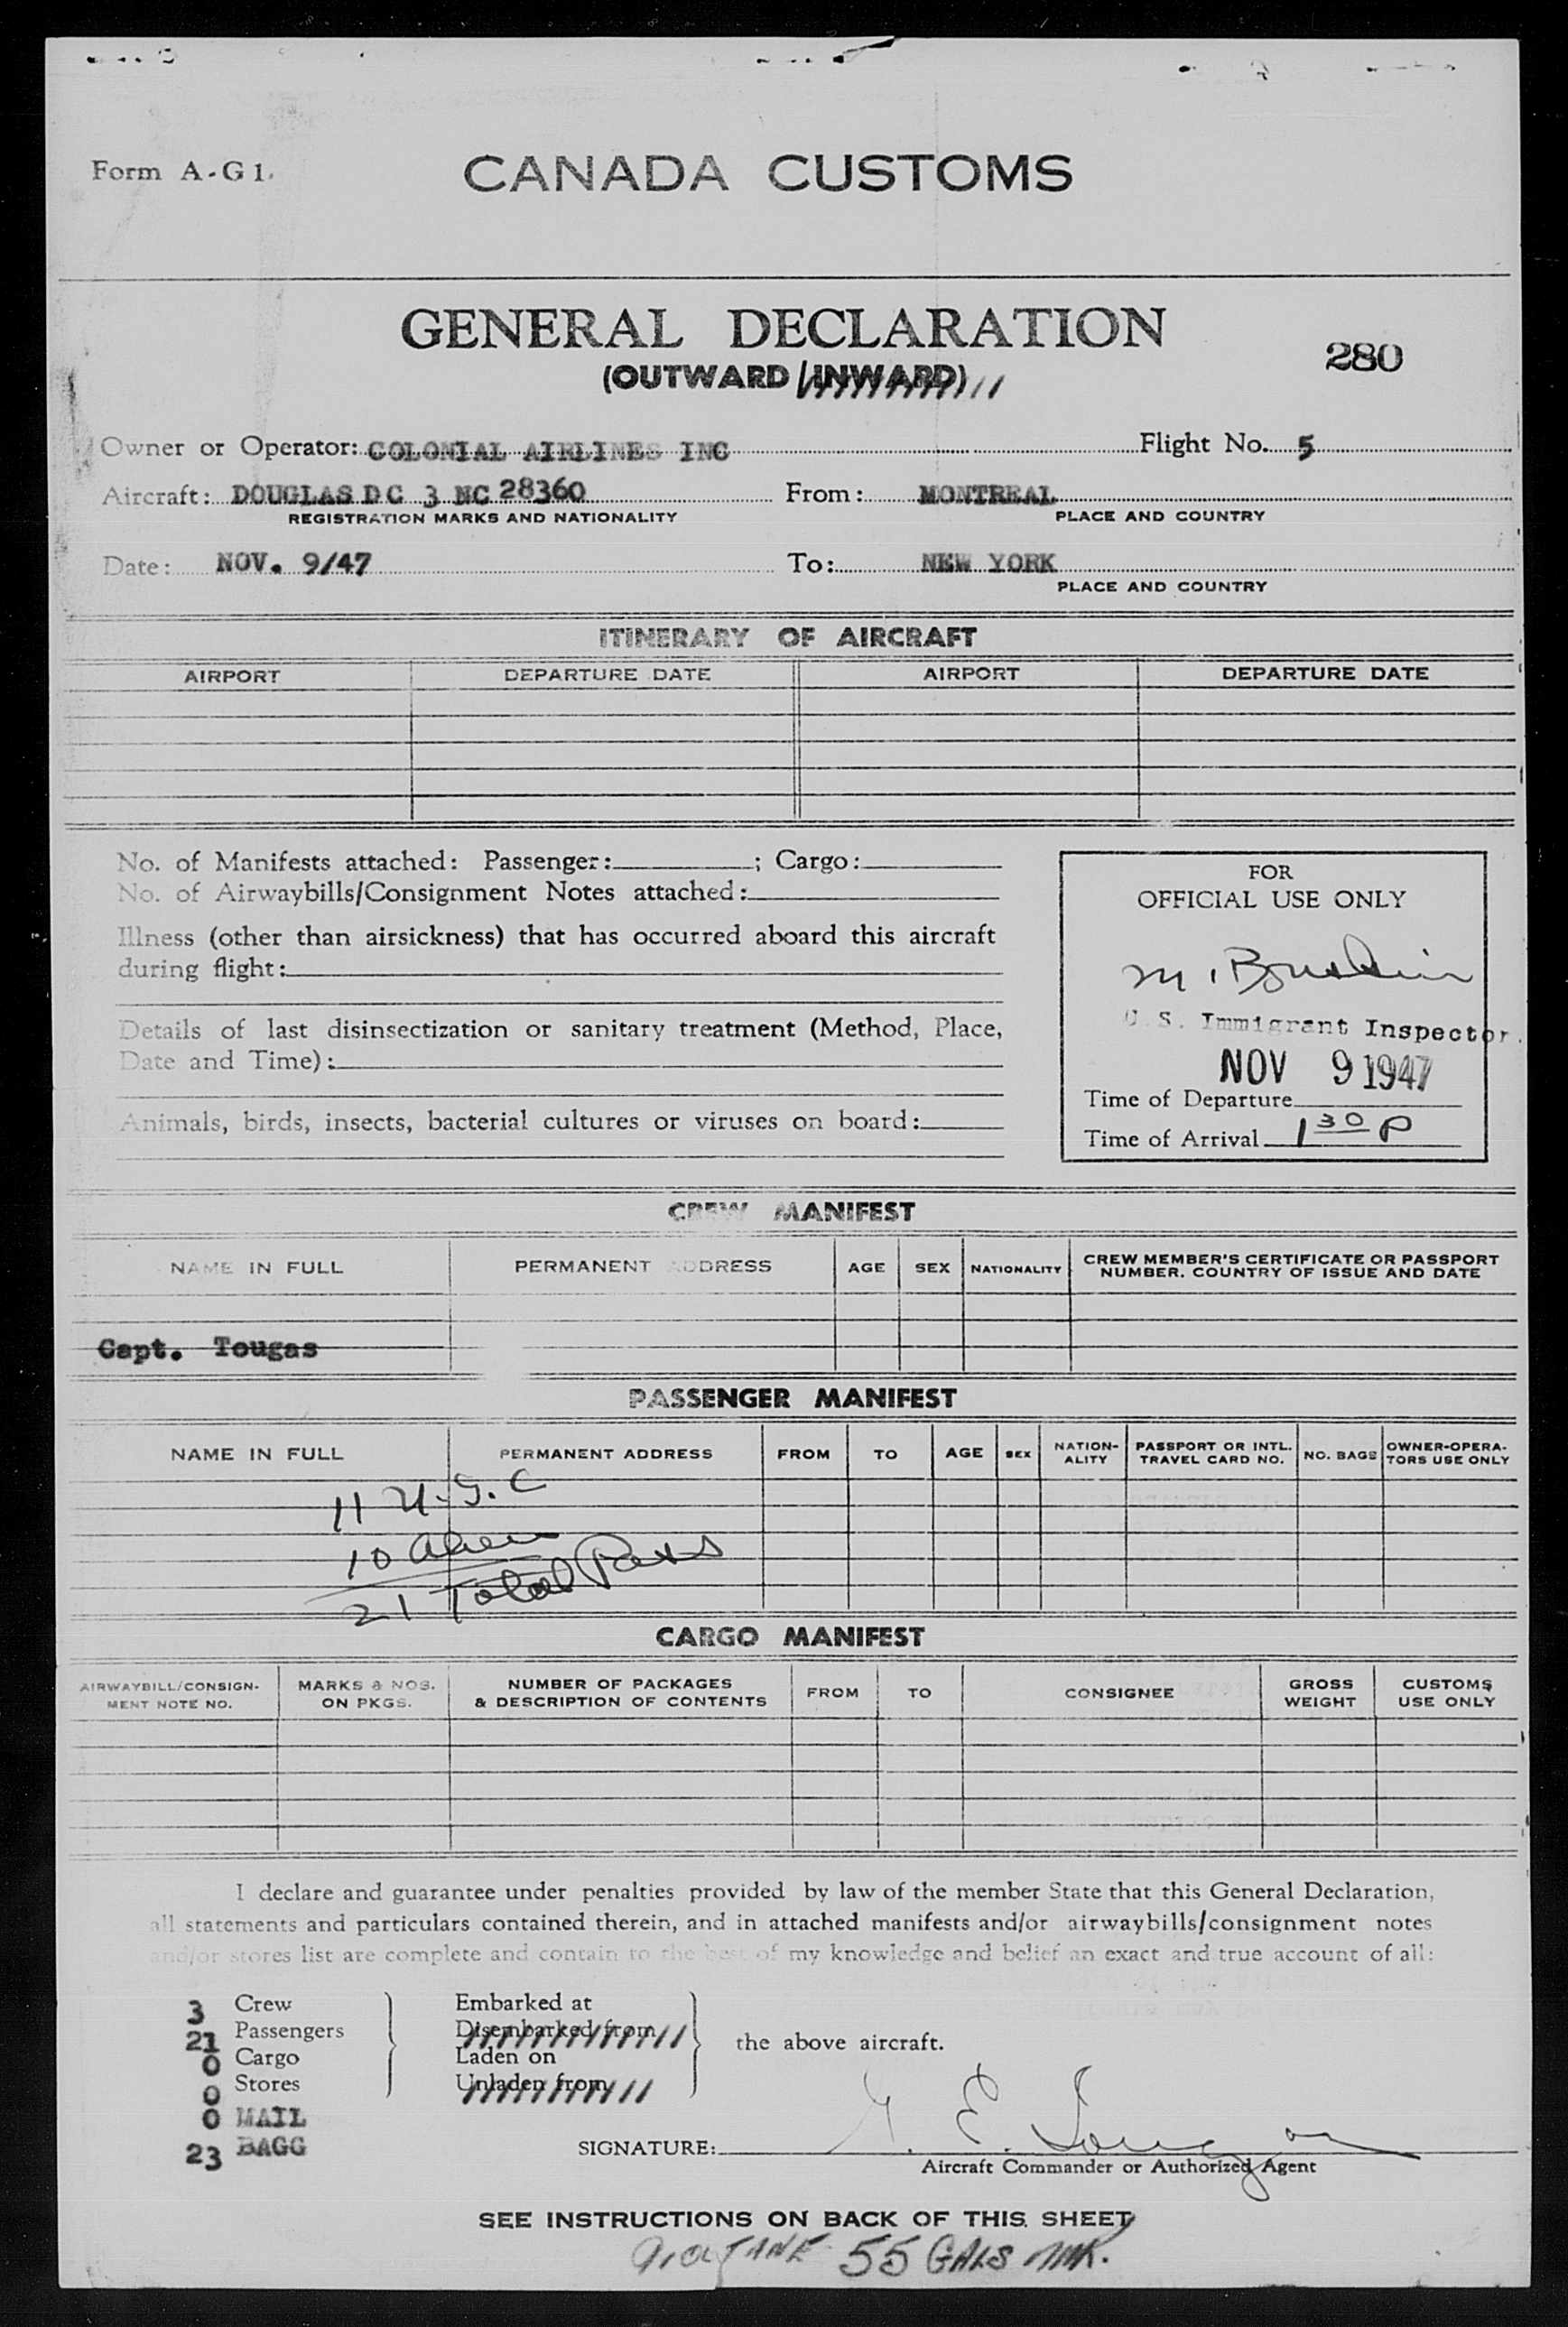 Form A-G1.
CANADA CUSTOMS
GENERAL DECLARATION
(OUTWARD/INWARD)
280
Owner or Operator: COLONIAL AIRLINES INC Flight No. 5
Aircraft: DOUGLAS DC 3 NC 28360 From: MONTREAL
REGISTRATION MARKS AND NATIONALITY PLACE AND COUNTRY
Date: NOV. 9/47 To: NEW YORK
PLACE AND COUNTRY
ITINERARY OF AIRCRAFT
AIRPORT DEPARTURE DATE AIRPORT DEPARTURE DATE
No. of Manifests attached: Passenger: ; Cargo:
No. of Airwaybills/Consignment Notes attached:
Illness (other than airsickness) that has occurred aboard this aircraft
during flight:
Details of last disinsectization or sanitary treatment (Method, Place,
Date and Time):
Animals, birds, insects, bacterial cultures or viruses on board:
FOR
OFFICIAL USE ONLY
M.
U.S. Immigrant Inspector.
NOV 9 1947
Time of Departure
Time of Arrival 1 30 P
CREW MANIFEST
NAME IN FULL PERMANENT ADDRESS AGE SEX NATIONALITY CREW MEMBER'S CERTIFICATE OR PASSPORT
NUMBER. COUNTRY OF ISSUE AND DATE
Capt. Tougas
PASSENGER MANIFEST
NAME IN FULL PERMANENT ADDRESS FROM TO AGE SEX NATION-
ALITY PASSPORT OR INTL.
TRAVEL CARD NO. NO. BAGS OWNER-OPERA-
TORS USE ONLY
11 U.S.C
10 Alien
21 Total Pass
CARGO MANIFEST
AIRWAYBILL/CONSIGN-
MENT NOTE NO. MARKS & NOS.
ON PKGS. NUMBER OF PACKAGES
& DESCRIPTION OF CONTENTS FROM TO CONSIGNEE GROSS
WEIGHT CUSTOMS
USE ONLY
I declare and guarantee under penalties provided by law of the member State that this General Declaration,
all statements and particulars contained therein, and in attached manifests and/or airwaybills/consignment notes
and/or stores list are complete and contain to the best of my knowledge and belief an exact and true account of all:
3 Crew
21 Passengers
0 Cargo
0 Stores
0 MAIL
23 BAGG
Embarked at
Disembarked from
Laden on
Unladen from
the above aircraft.
SIGNATURE: E. Tougas
Aircraft Commander or Authorized Agent
SEE INSTRUCTIONS ON BACK OF THIS SHEET
55 GALS